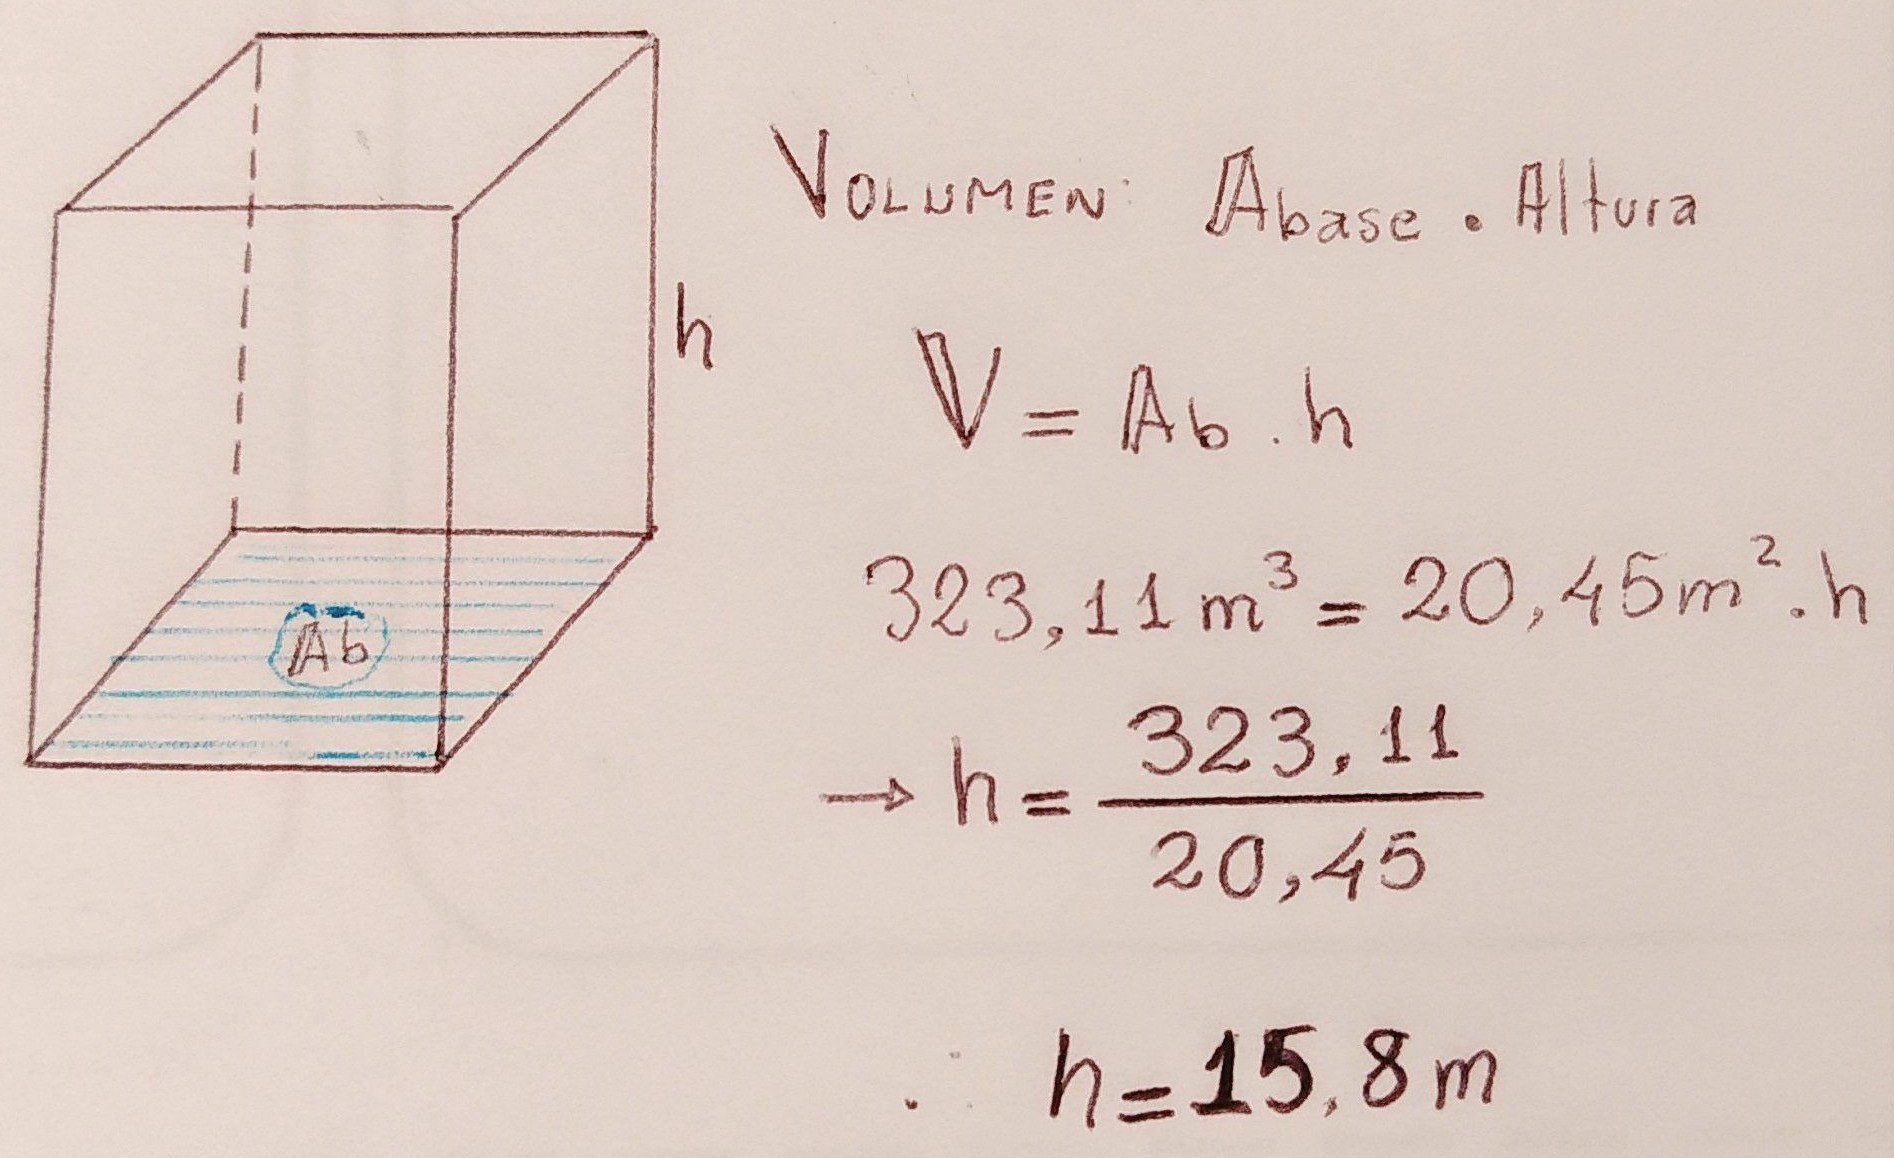 VOLUMEN: Abase . Altura
h
V = Ab . h
323,11 m³ = 20,45 m² . h
Ab
→ h = 323,11
20,45
∴ h = 15,8 m